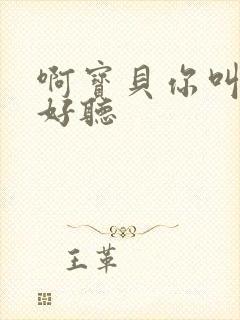 啊寶貝你叫
好聽
王革